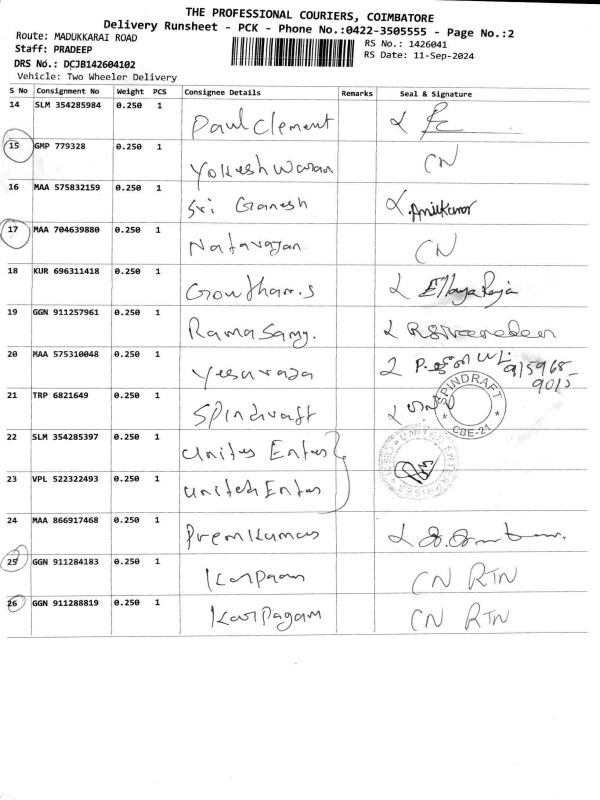 THE PROFESSIONAL COURIERS, COIMBATORE
Delivery Runsheet - PCK - Phone No.:0422-3505555 - Page No.:2
Route: MADUKKARAI ROAD
RS No.: 1426041
Staff: PRADEEP
RS Date: 11-Sep-2024
DRS No.: DCJB142604102
Vehicle: Two Wheeler Delivery
S No Consignment No Weight PCS Consignee Details Remarks Seal & Signature
14 SLM 354285984 0.250 1 Paul Clement
15 GMP 779328 0.250 1 Yokeshwaran CN
16 MAA 575832159 0.250 1 Sri Ganesh Anilkumar
17 MAA 704639880 0.250 1 Natarajan CN
18 KUR 696311418 0.250 1 Gowtham.s EllayaRaja
19 GGN 911257961 0.250 1 Ramasamy.
20 MAA 575310048 0.250 1 Yesuraja 915968-
9015
21 TRP 6821649 0.250 1 Spindraft SPINDRAFT CBE-21
22 SLM 354285397 0.250 1 United Enters UNITED ENTERPRISES
23 VPL 522322493 0.250 1 United Enters
24 MAA 866917468 0.250 1 Premkumar
25 GGN 911284183 0.250 1 CN RTN
26 GGN 911288819 0.250 1 Karpagam CN RTN